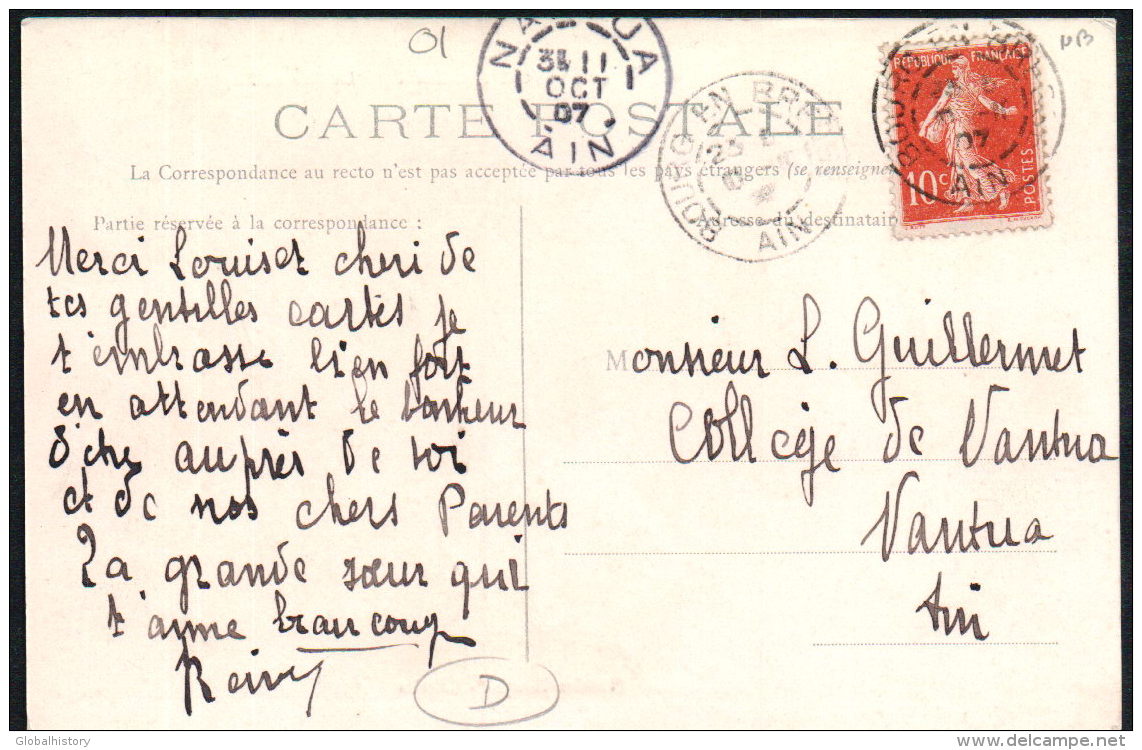 01
NANTUA
3E 11
OCT
07
AIN
NB
REPUBLIQUE FRANÇAISE
10c
POSTES
BOURG EN BRESSE
AIN
CARTE POSTALE
La Correspondance au recto n'est pas acceptée par tous les pays étrangers (se renseigner
Partie réservée à la correspondance :
Adresse du destinatai
Merci Louiset cheri de
tes gentilles cartes je
t'embrasse bien fort
en attendant le bonheur
d'être auprès de toi
et de nos chers Parents
Ta grande sœur qui
t'aime beaucoup
Monsieur L. Guillermet
Collège de Nantua
Nantua
Ain
D
Globalhistory
delcampe.net